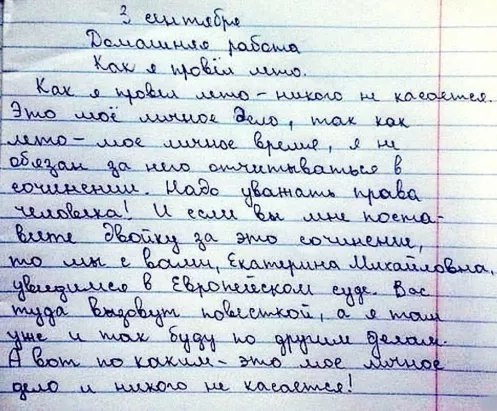 3 сентября
Домашняя работа
Как я провёл лето.
Как я провел лето - никого не касается.
Это моё личное дело, так как
лето - мое личное время, я не
обязан за него отчитываться в
сочинении. Надо уважать права
человека! И если вы мне поста-
вите двойку за это сочинение,
то мы с вами, Екатерина Михайловна,
увидимся в Европейском суде. Вас
туда вызовут повесткой, а я там
уже и так буду по другим делам.
А вот по каким - это мое личное
дело и никого не касается!